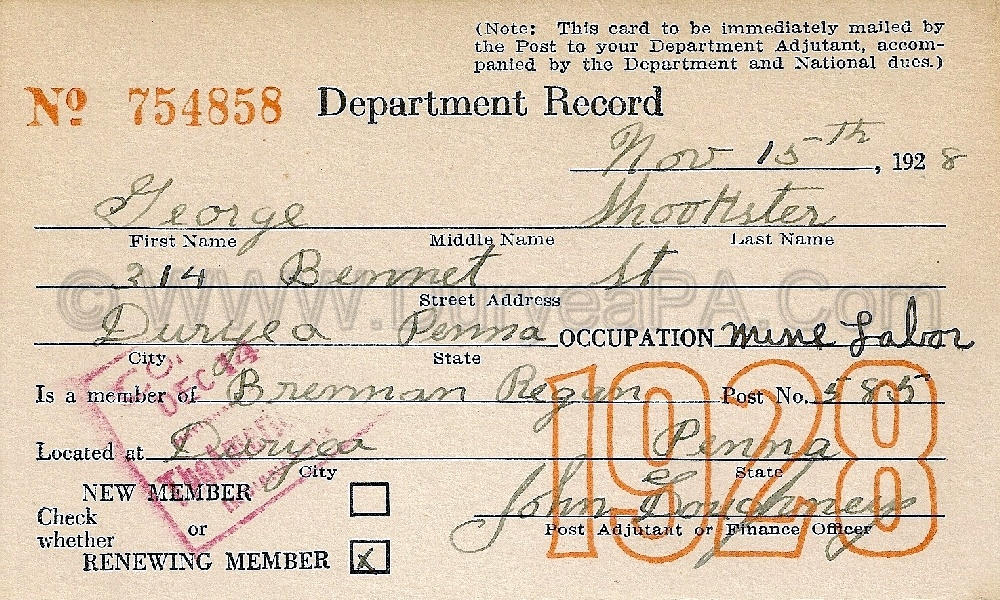 (Note: This card to be immediately mailed by
the Post to your Department Adjutant, accom-
panied by the Department and National dues.)
No 754858 Department Record
Nov 15th, 1928
George Shookster
First Name Middle Name Last Name
314 Bennet St
Street Address
© WWW.DuryeaPA.Com
Duryea Penna OCCUPATION Mine Labor
City State
DEC 14
Is a member of Brennan Regan Post No. 585
1928
Located at Duryea Penna
City State
NEW MEMBER
Check
whether or
RENEWING MEMBER X
John Loughney
Post Adjutant or Finance Officer